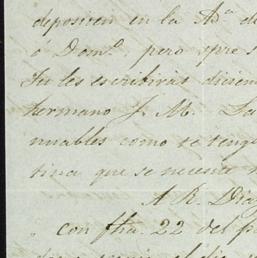 depositen en la Adª de
ó Domº, pero spre s
Tu les escribirás dicien
hermano J. M. Sa
nuables como te tengo
tina que se necesite
A R. Diaz
con fha. 22 del p